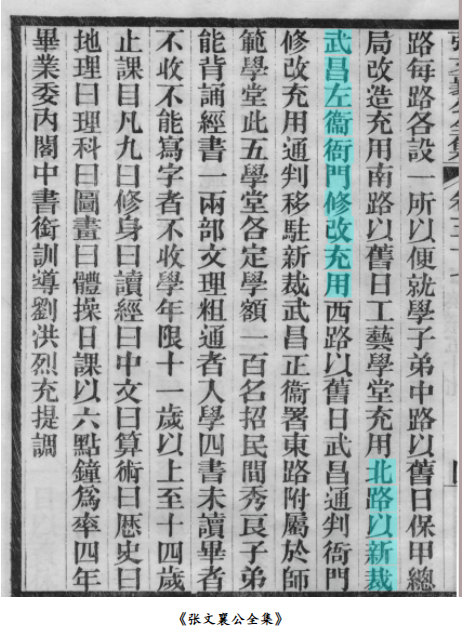 路每路各設一所以便就學子弟中路以舊日保甲總
局改造充用南路以舊日工藝學堂充用北路以新裁
武昌左衞衙門修改充用西路以舊日武昌通判衙門
修改充用通判移駐新裁武昌正衞署東路附屬於師
範學堂此五學堂各定學額一百名招民間秀良子弟
能背誦經書一兩部文理粗通者入學四書未讀畢者
不收不能寫字者不收學年限十一歲以上至十四歲
止課目凡九曰修身曰讀經曰中文曰算術曰歷史曰
地理曰理科曰圖畫曰體操日課以六點鐘爲率四年
畢業委內閣中書銜訓導劉洪烈充提調
《张文襄公全集》